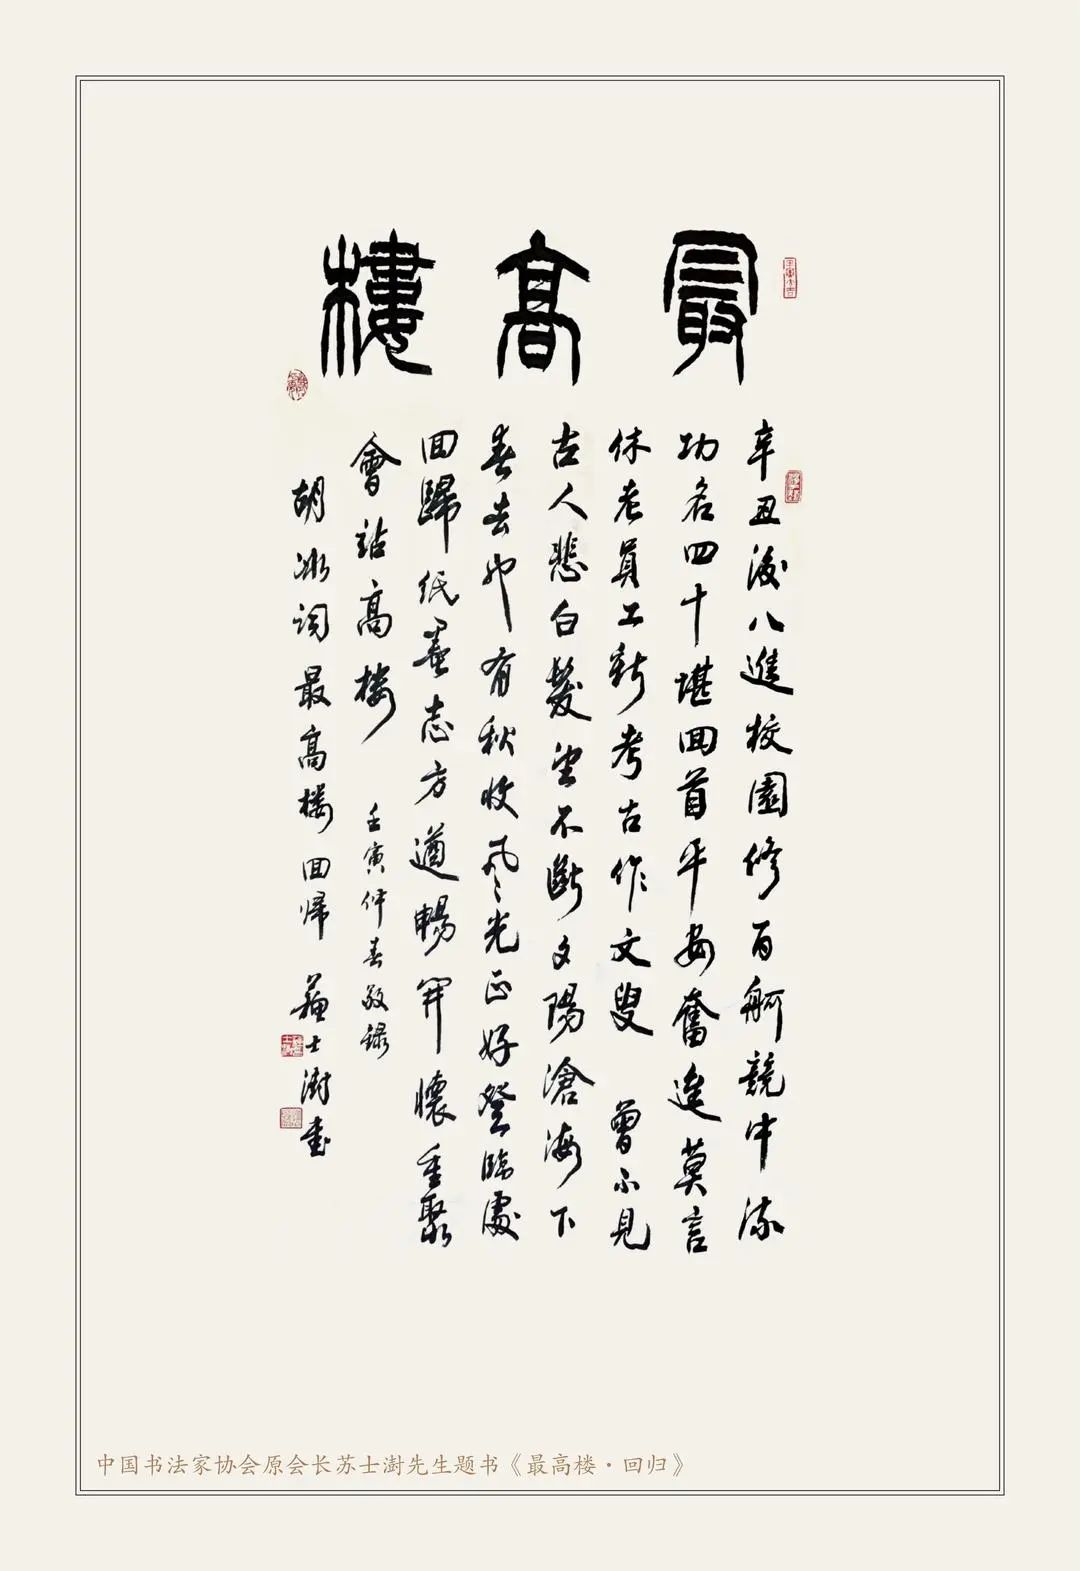 最高樓
辛丑後八進校園修百舸競中流
功名四十堪回首平安奮進莫言
休老員工新考古作文叟 曾不見
古人悲白髮望不斷夕陽滄海下
春去也有秋收風光正好登臨處
回歸紙墨志方遒暢開懷重聚
會站高楼 壬寅仲春敬録
胡冰詞最高楼回归 蘇士澍書
中国书法家协会原会长苏士澍先生题书《最高楼·回归》